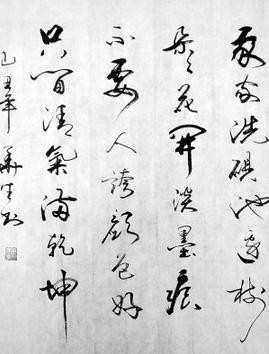 我家洗硯池邊樹
朵々花開淡墨痕
不要人誇顏色好
只留清氣滿乾坤
丑年